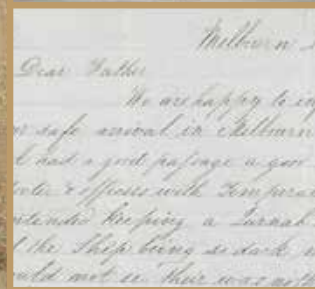 Melburn
Dear Father
We are happy to
safe arival in Melburn
had a good pasage a good
& officers with
intended keeping a Jurnal
the Ship being so dark
not se their was